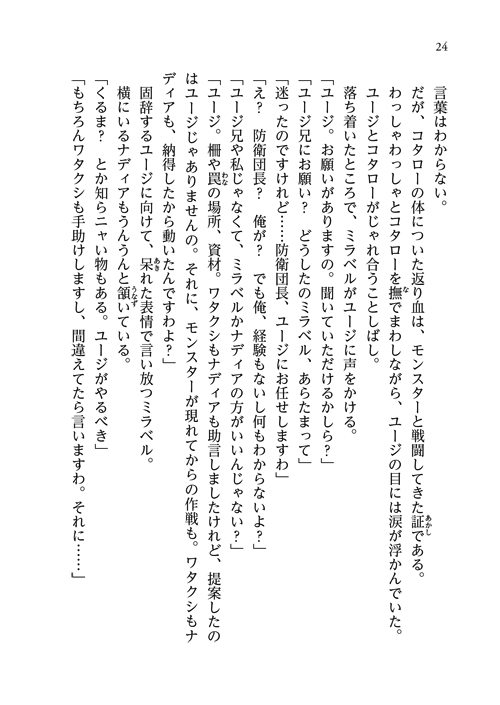 24
言葉はわからない。
だが、コタローの体についた返り血は、モンスターと戦闘してきた証である。
わっしゃわっしゃとコタローを撫でまわしながら、ユージの目には涙が浮かんでいた。
ユージとコタローがじゃれ合うことしばし。
落ち着いたところで、ミラベルがユージに声をかける。
「ユージ。お願いがありますの。聞いていただけるかしら？」
「ユージ兄にお願い？　どうしたのミラベル、あらたまって」
「迷ったのですけれど……防衛団長、ユージにお任せしますわ」
「え？　防衛団長？　俺が？　でも俺、経験もないし何もわからないよ？」
「ユージ兄や私じゃなくて、ミラベルかナディアの方がいいんじゃない？」
「ユージ。柵や罠の場所、資材。ワタクシもナディアも助言しましたけれど、提案したの
はユージじゃありませんの。それに、モンスターが現れてからの作戦も。ワタクシもナ
ディアも、納得したから動いたんですわよ？」
固辞するユージに向けて、呆れた表情で言い放つミラベル。
横にいるナディアもうんうんと頷いている。
「くるま？　とか知らニャい物もある。ユージがやるべき」
「もちろんワタクシも手助けしますし、間違えてたら言いますわ。それに……」